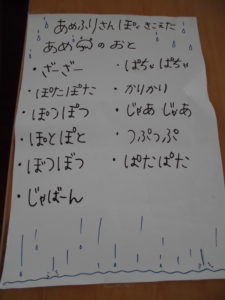 あめふりさんぽで きこえた
あめの おと
・ざーざー
・ぽたぽた
・ぽつぽつ
・ぽとぽと
・ぼつぼつ
・じゃばーん
・ぱちゃ ぱちゃ
・かりかり
・じゃあ じゃあ
・つぷっぷ
・ぱたぱた